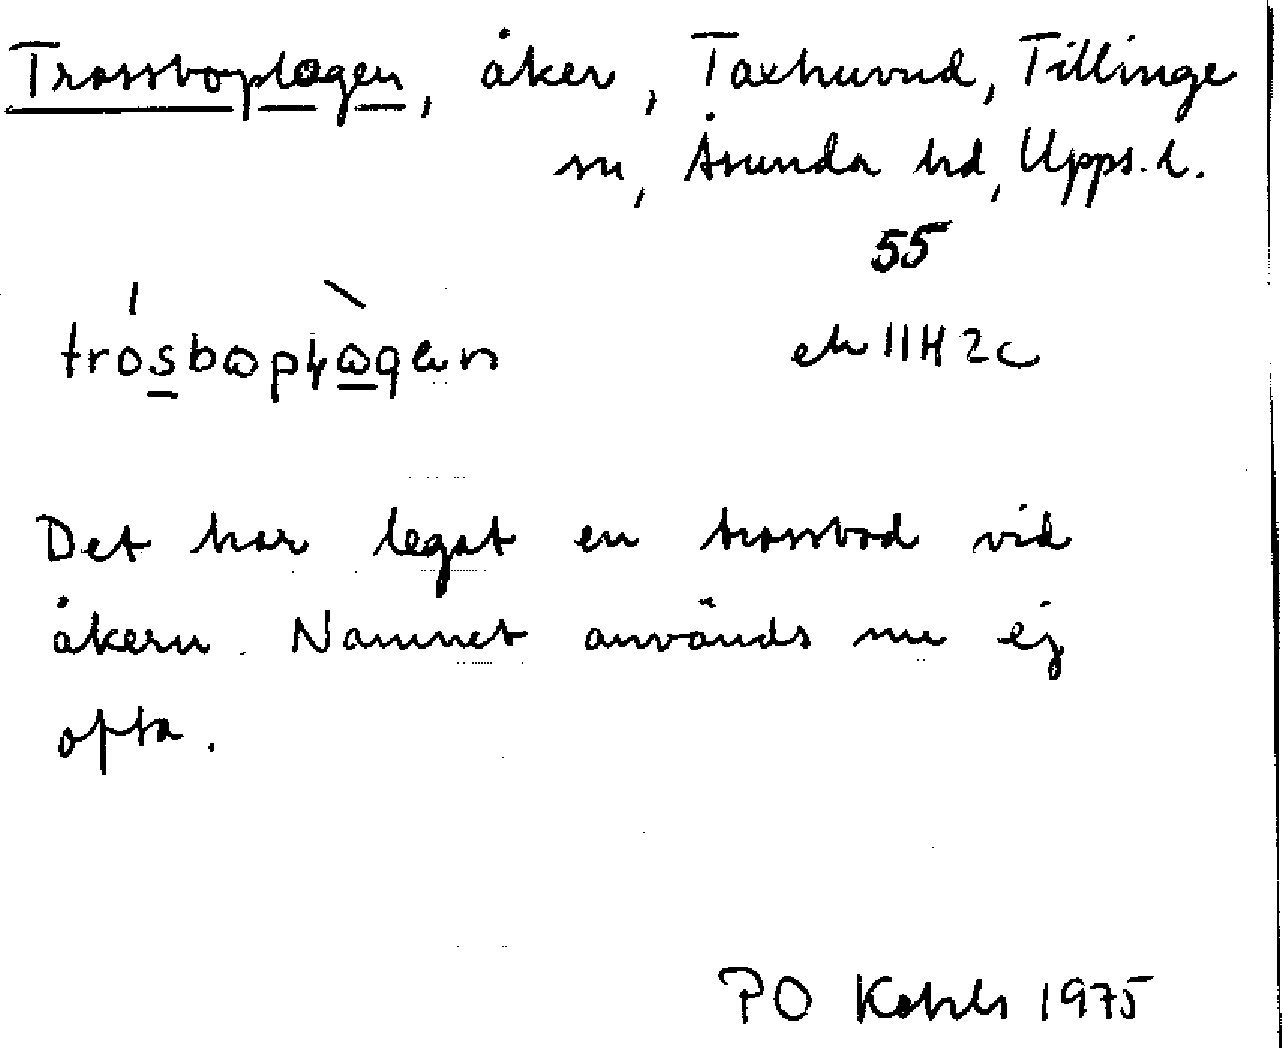 Trossboplogen, åker, Taxhuvud, Tillinge
sn, Åsunda hd, Upps. l.
55
ek 11H 2c
Det har legat en trossbod vid
åkern. Namnet används nu ej
ofta.
PO 1975